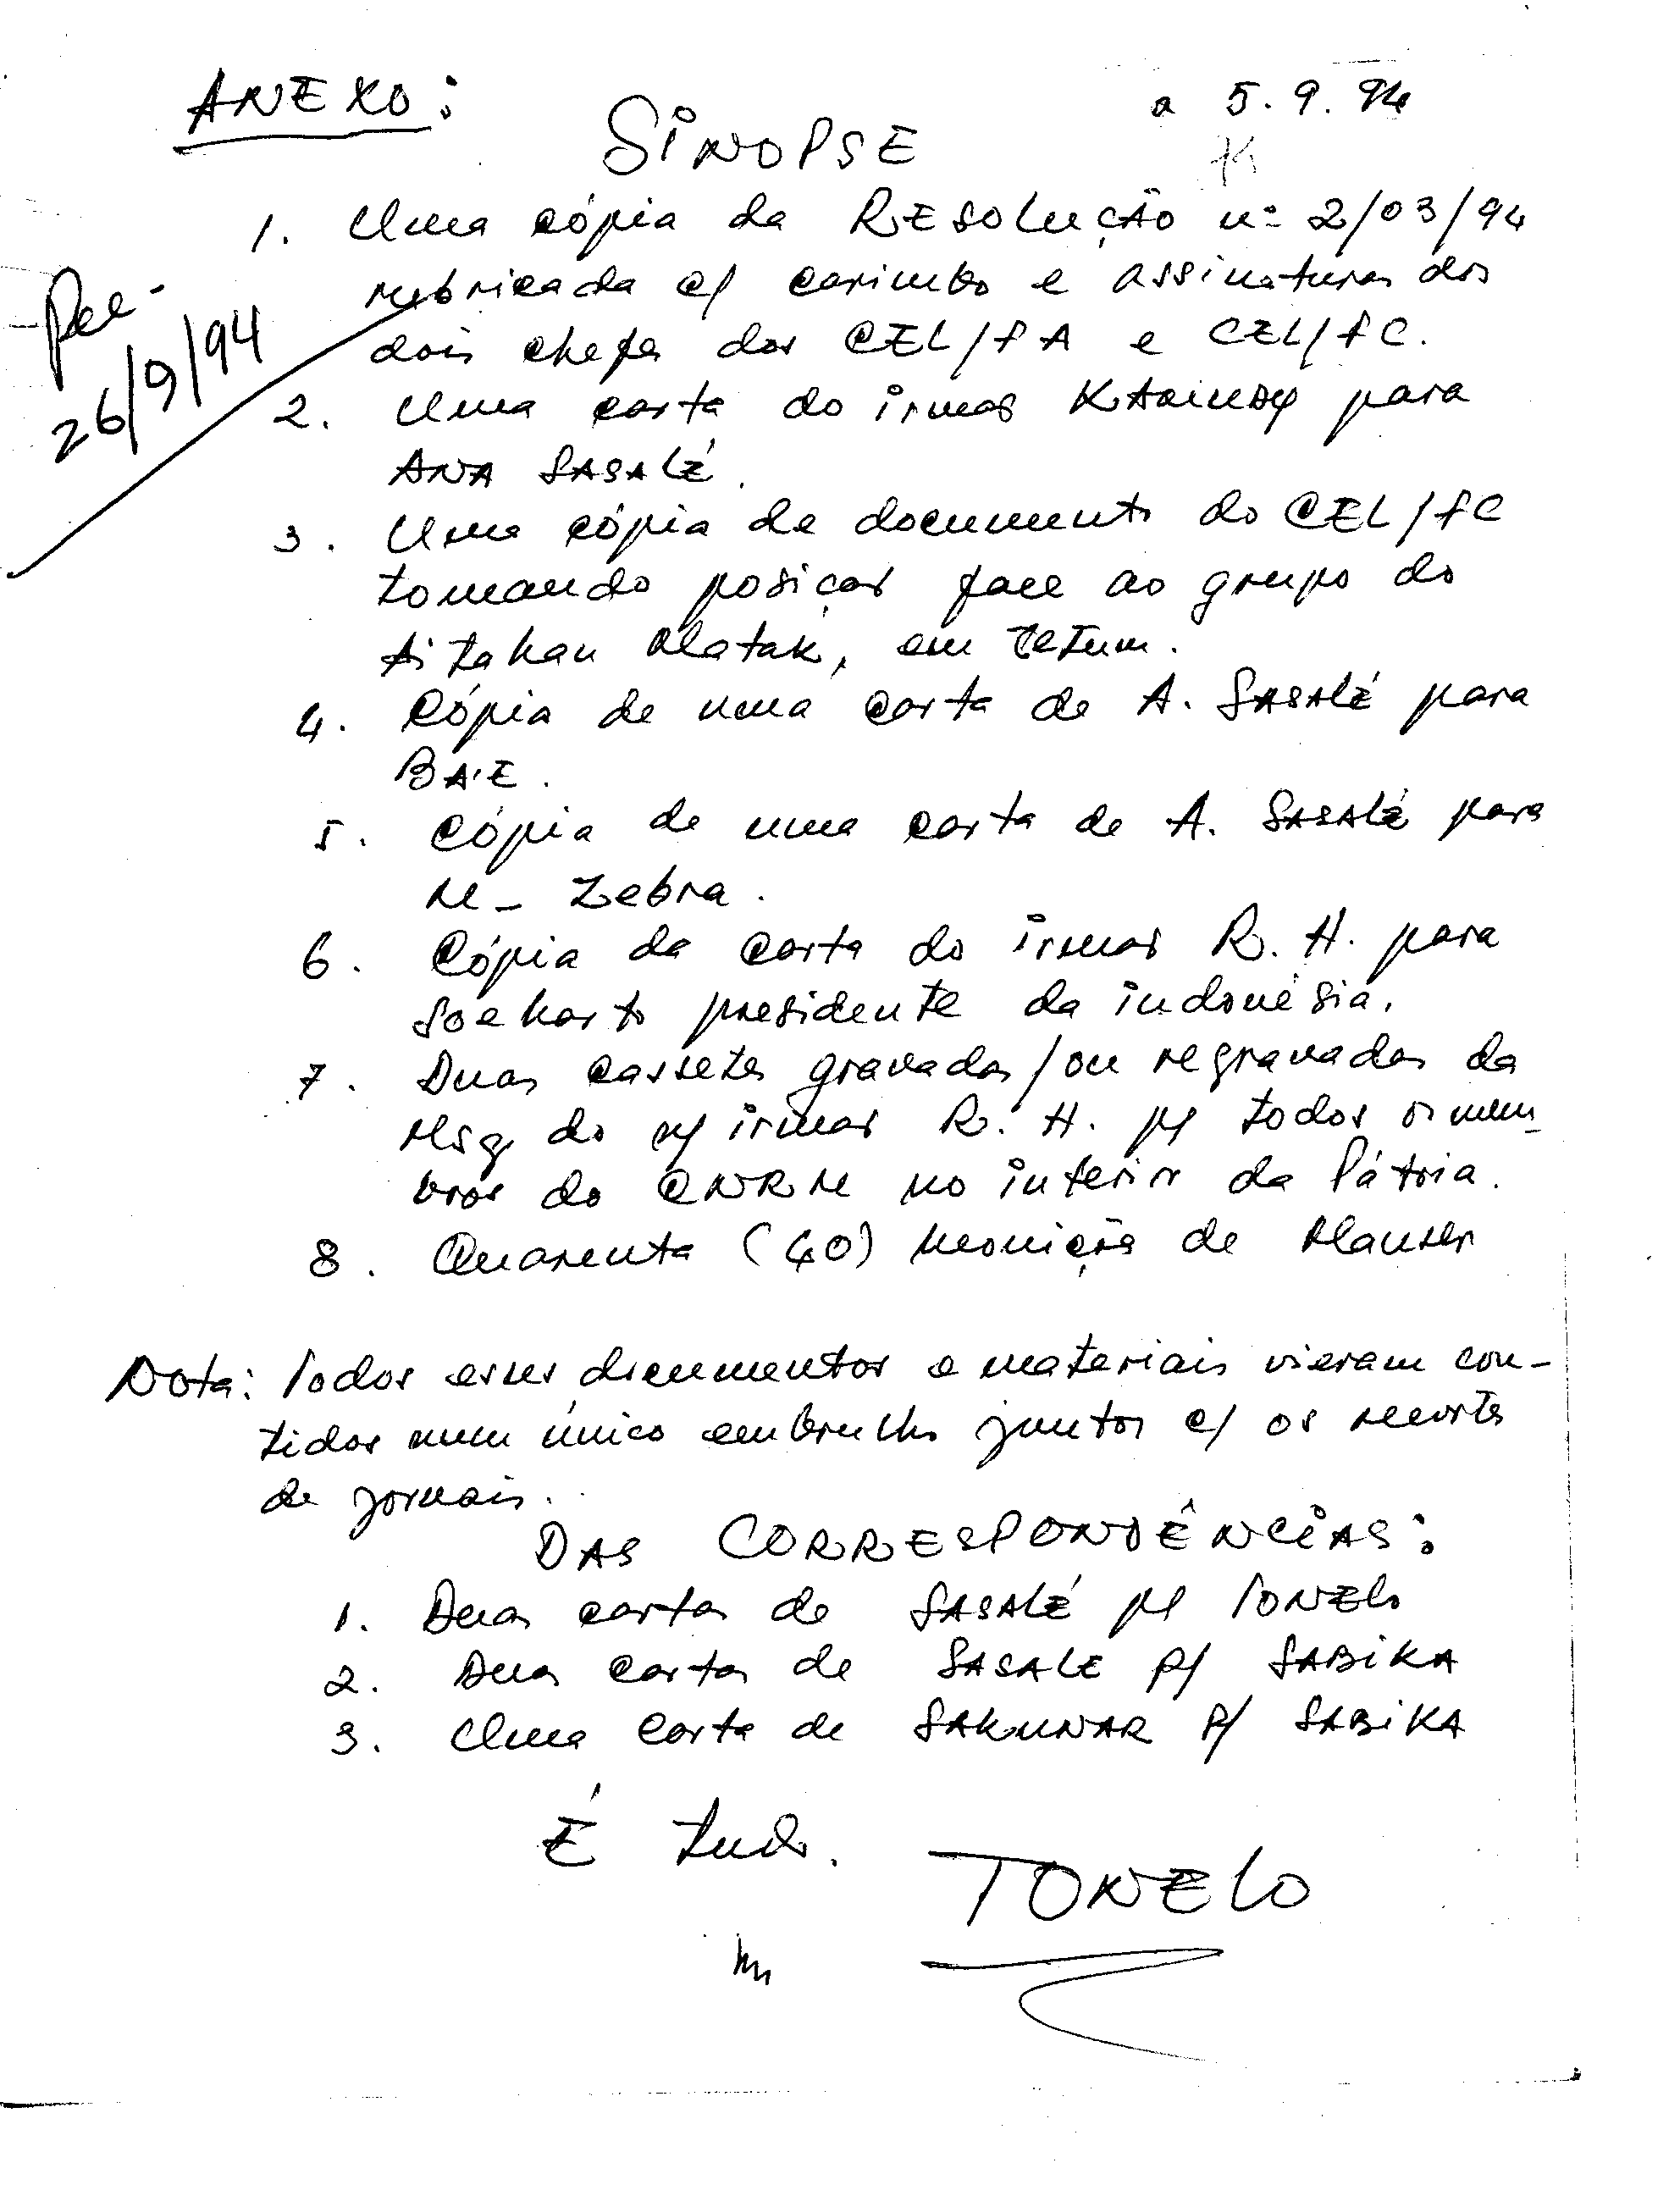 ANEXO:
a 5.9.94
SINOPSE
1. Uma cópia da RESOLUÇÃO nº 2/03/94
rubricada c/ carimbo e assinaturas dos
dois chefes dos CEL/FA e CEL/FC.
Rec.
26/9/94
2. Uma carta do irmão para
ANA SASALÉ.
3. Uma cópia de documento do CEL/FC
tomando posição face ao grupo do
Aitahan Matak, em Tetum.
4. Cópia de uma carta de A. SASALÉ para
BA'E.
5. Cópia de uma carta de A. SASALÉ para
M_ Zebra.
6. Cópia da carta do irmão R. H. para
Soeharto presidente da indonésia.
7. Duas cassetes gravadas/ou regravadas da
Msg do n/ irmão R. H. p/ todos os mem_
bros do CNRM no interior da Pátria.
8. Quarenta (40) munições de Mauser
Nota: Todos esses documentos e materiais vieram con-
tidos num único embrulho juntos c/ os recortes
de jornais.
DAS CORRESPONDÊNCIAS:
1. Duas cartas de SASALÉ p/ TONELO
2. Duas cartas de SASALE P/ SABIKA
3. Uma carta de SAKUNAR P/ SABIKA
É tudo.
TONELO